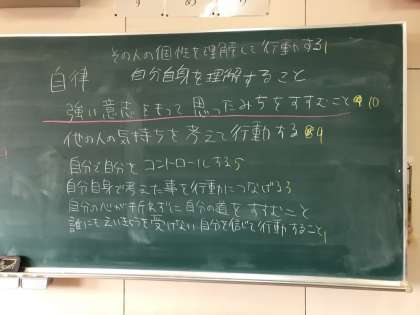 その人の個性を理解して行動する1
自律 自分自身を理解すること
強い意志をもって思ったみちをすすむこと 10
他の人の気持ちを考えて行動する 4
自分で自分をコントロールする5
自分自身で考えた事を行動につなげる3
自分の心が折れずに自分の道をすすむこと
誰にもえいきょうを受けない自分を信じて行動すること1